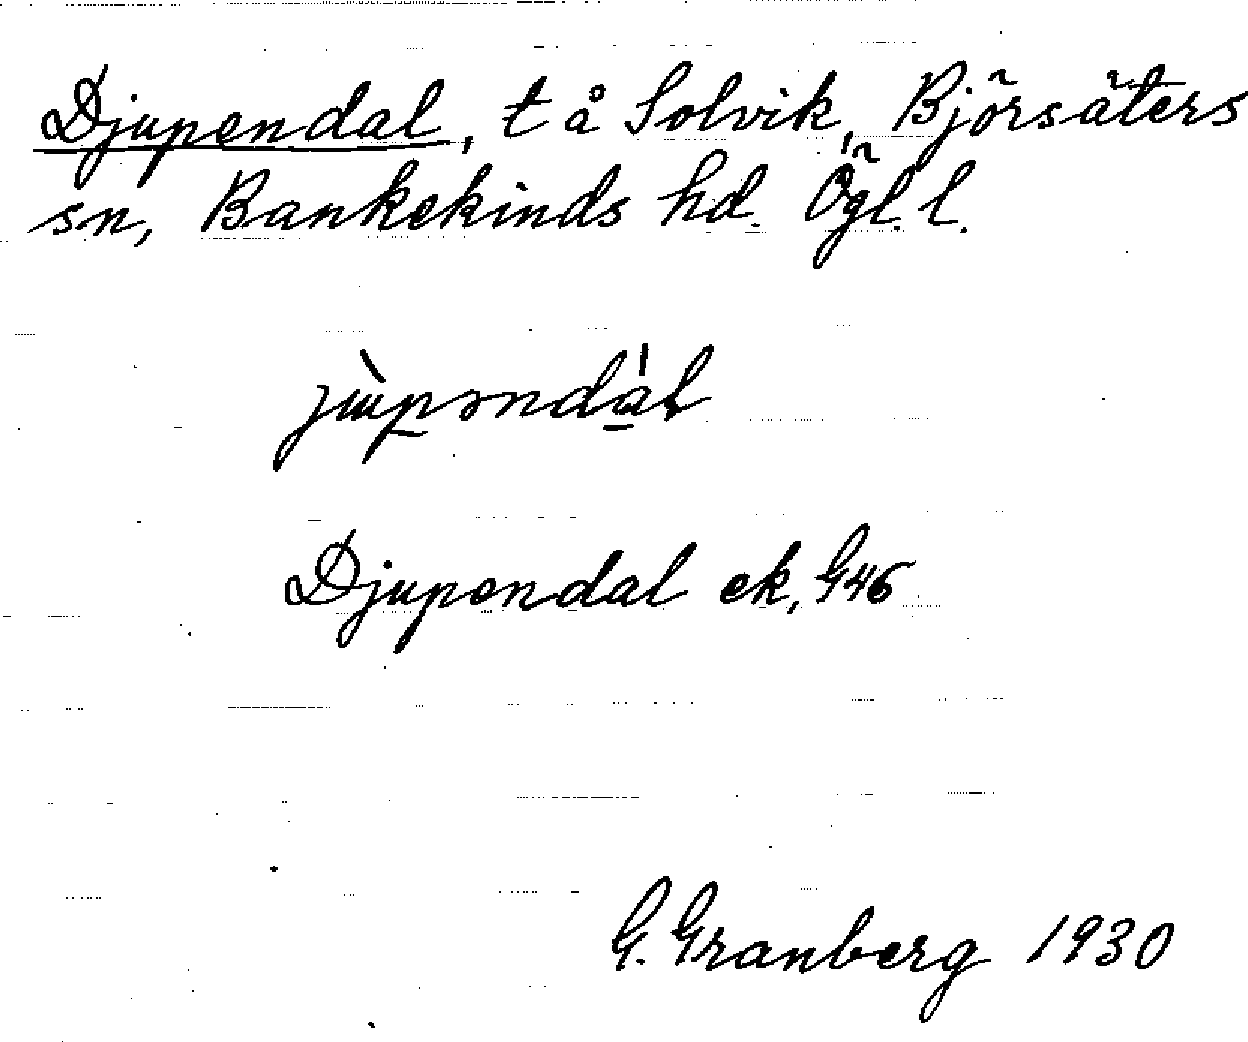 Djupendal, t å Solvik, Björsäters
sn, Bankekinds hd. Ögl. l.
Djupendal ek, G46
G. Granberg 1930